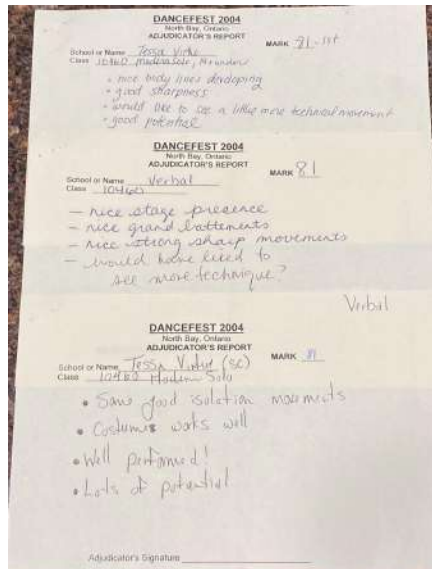 DANCEFEST 2004
North Bay, Ontario
ADJUDICATOR'S REPORT
MARK 81
School or Name Tessa Virtue
Class 10460 Modern Solo,
• nice body lines developing
• good sharpness
• would like to see a little more technical movement
• good potential
DANCEFEST 2004
North Bay, Ontario
ADJUDICATOR'S REPORT
MARK 81
School or Name Verbal
Class 10460
- nice stage presence
- nice grand battements
- nice strong sharp movements
- would have liked to
see more technique?
Verbal
DANCEFEST 2004
North Bay, Ontario
ADJUDICATOR'S REPORT
MARK 81
School or Name Tessa Virtue (SC)
Class 10460 Modern Solo
• Some good isolation movements
• Costume works well
• Well performed!
• Lots of potential
Adjudicator's Signature